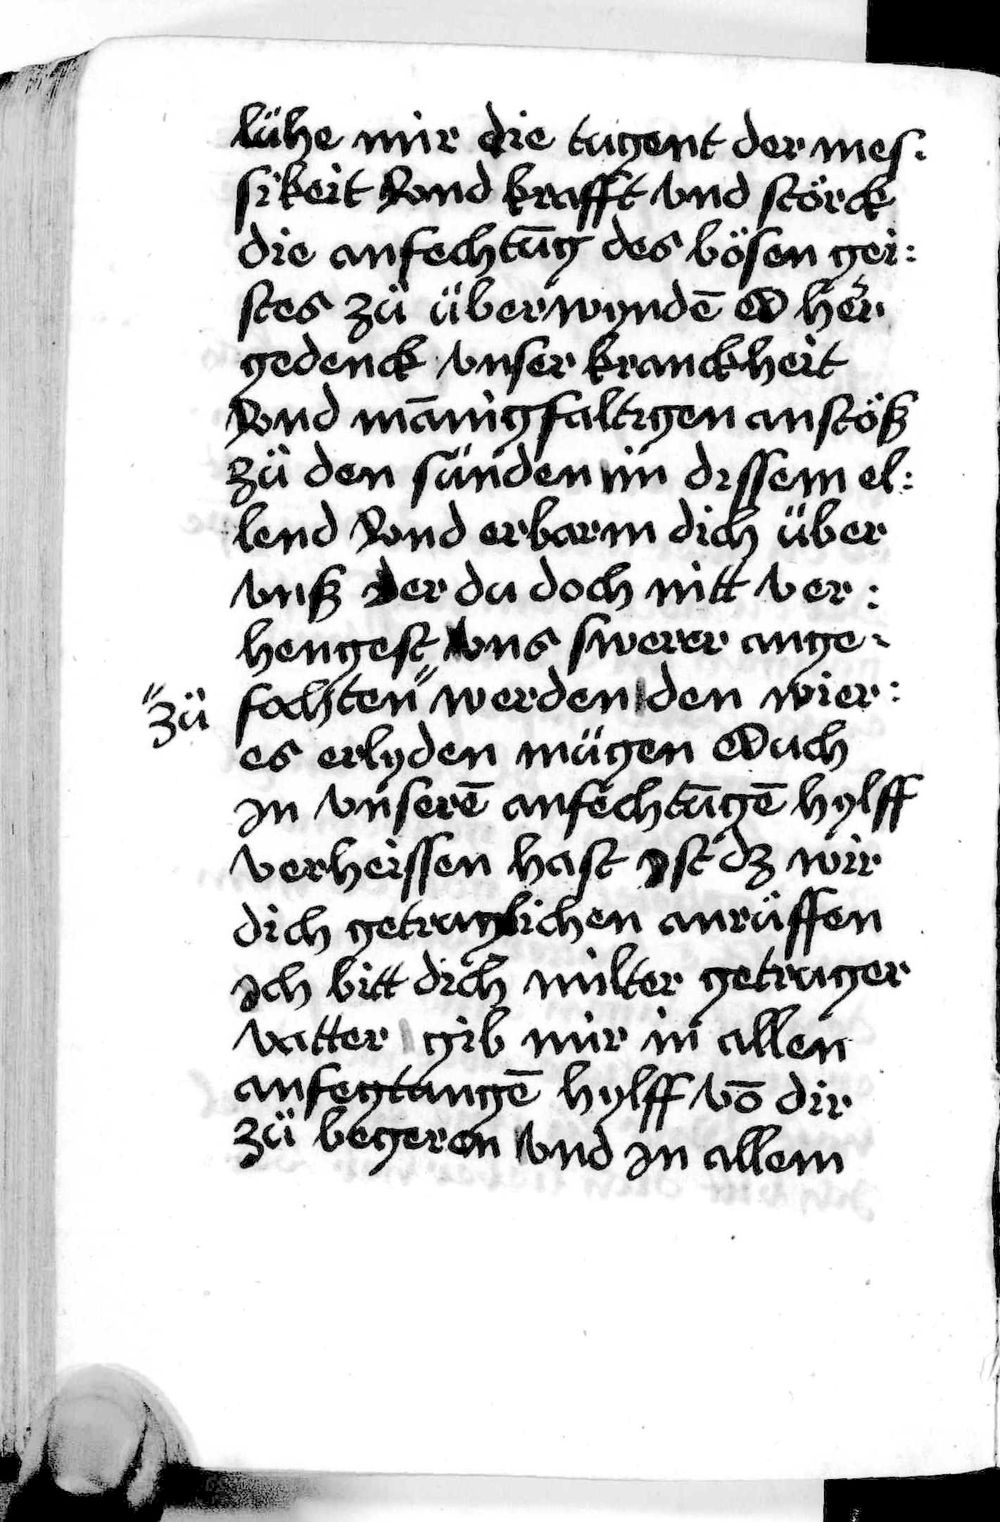 lühe mir die tugent der mes:
sikeit Vnd krafft vnd störck
die anfechtūg des bösen gei:
stes zü überwyndē O her
gedenck vnser kranckheit
Vnd mānigfaltigen anstöß
zü den sünden in dissem el:
lend Vnd erbarm dich über
vnß der du doch nitt ver:
hengest vns swerer ange:
"zü fochten" werden den wier:
es erlyden mügen Ouch
in vnserē anfechtūgē hylff
verheissen hast ist dz wir
dich getruylichen anrüffen
Ich bitt dich milter getruger
vatter gib mir in allen
anfegtungē hylff vō dir
zü begeren vnd in allem